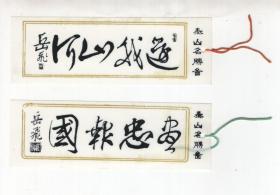 泰山名勝
還我山河
岳飛
泰山名勝
盡忠報國
岳飛